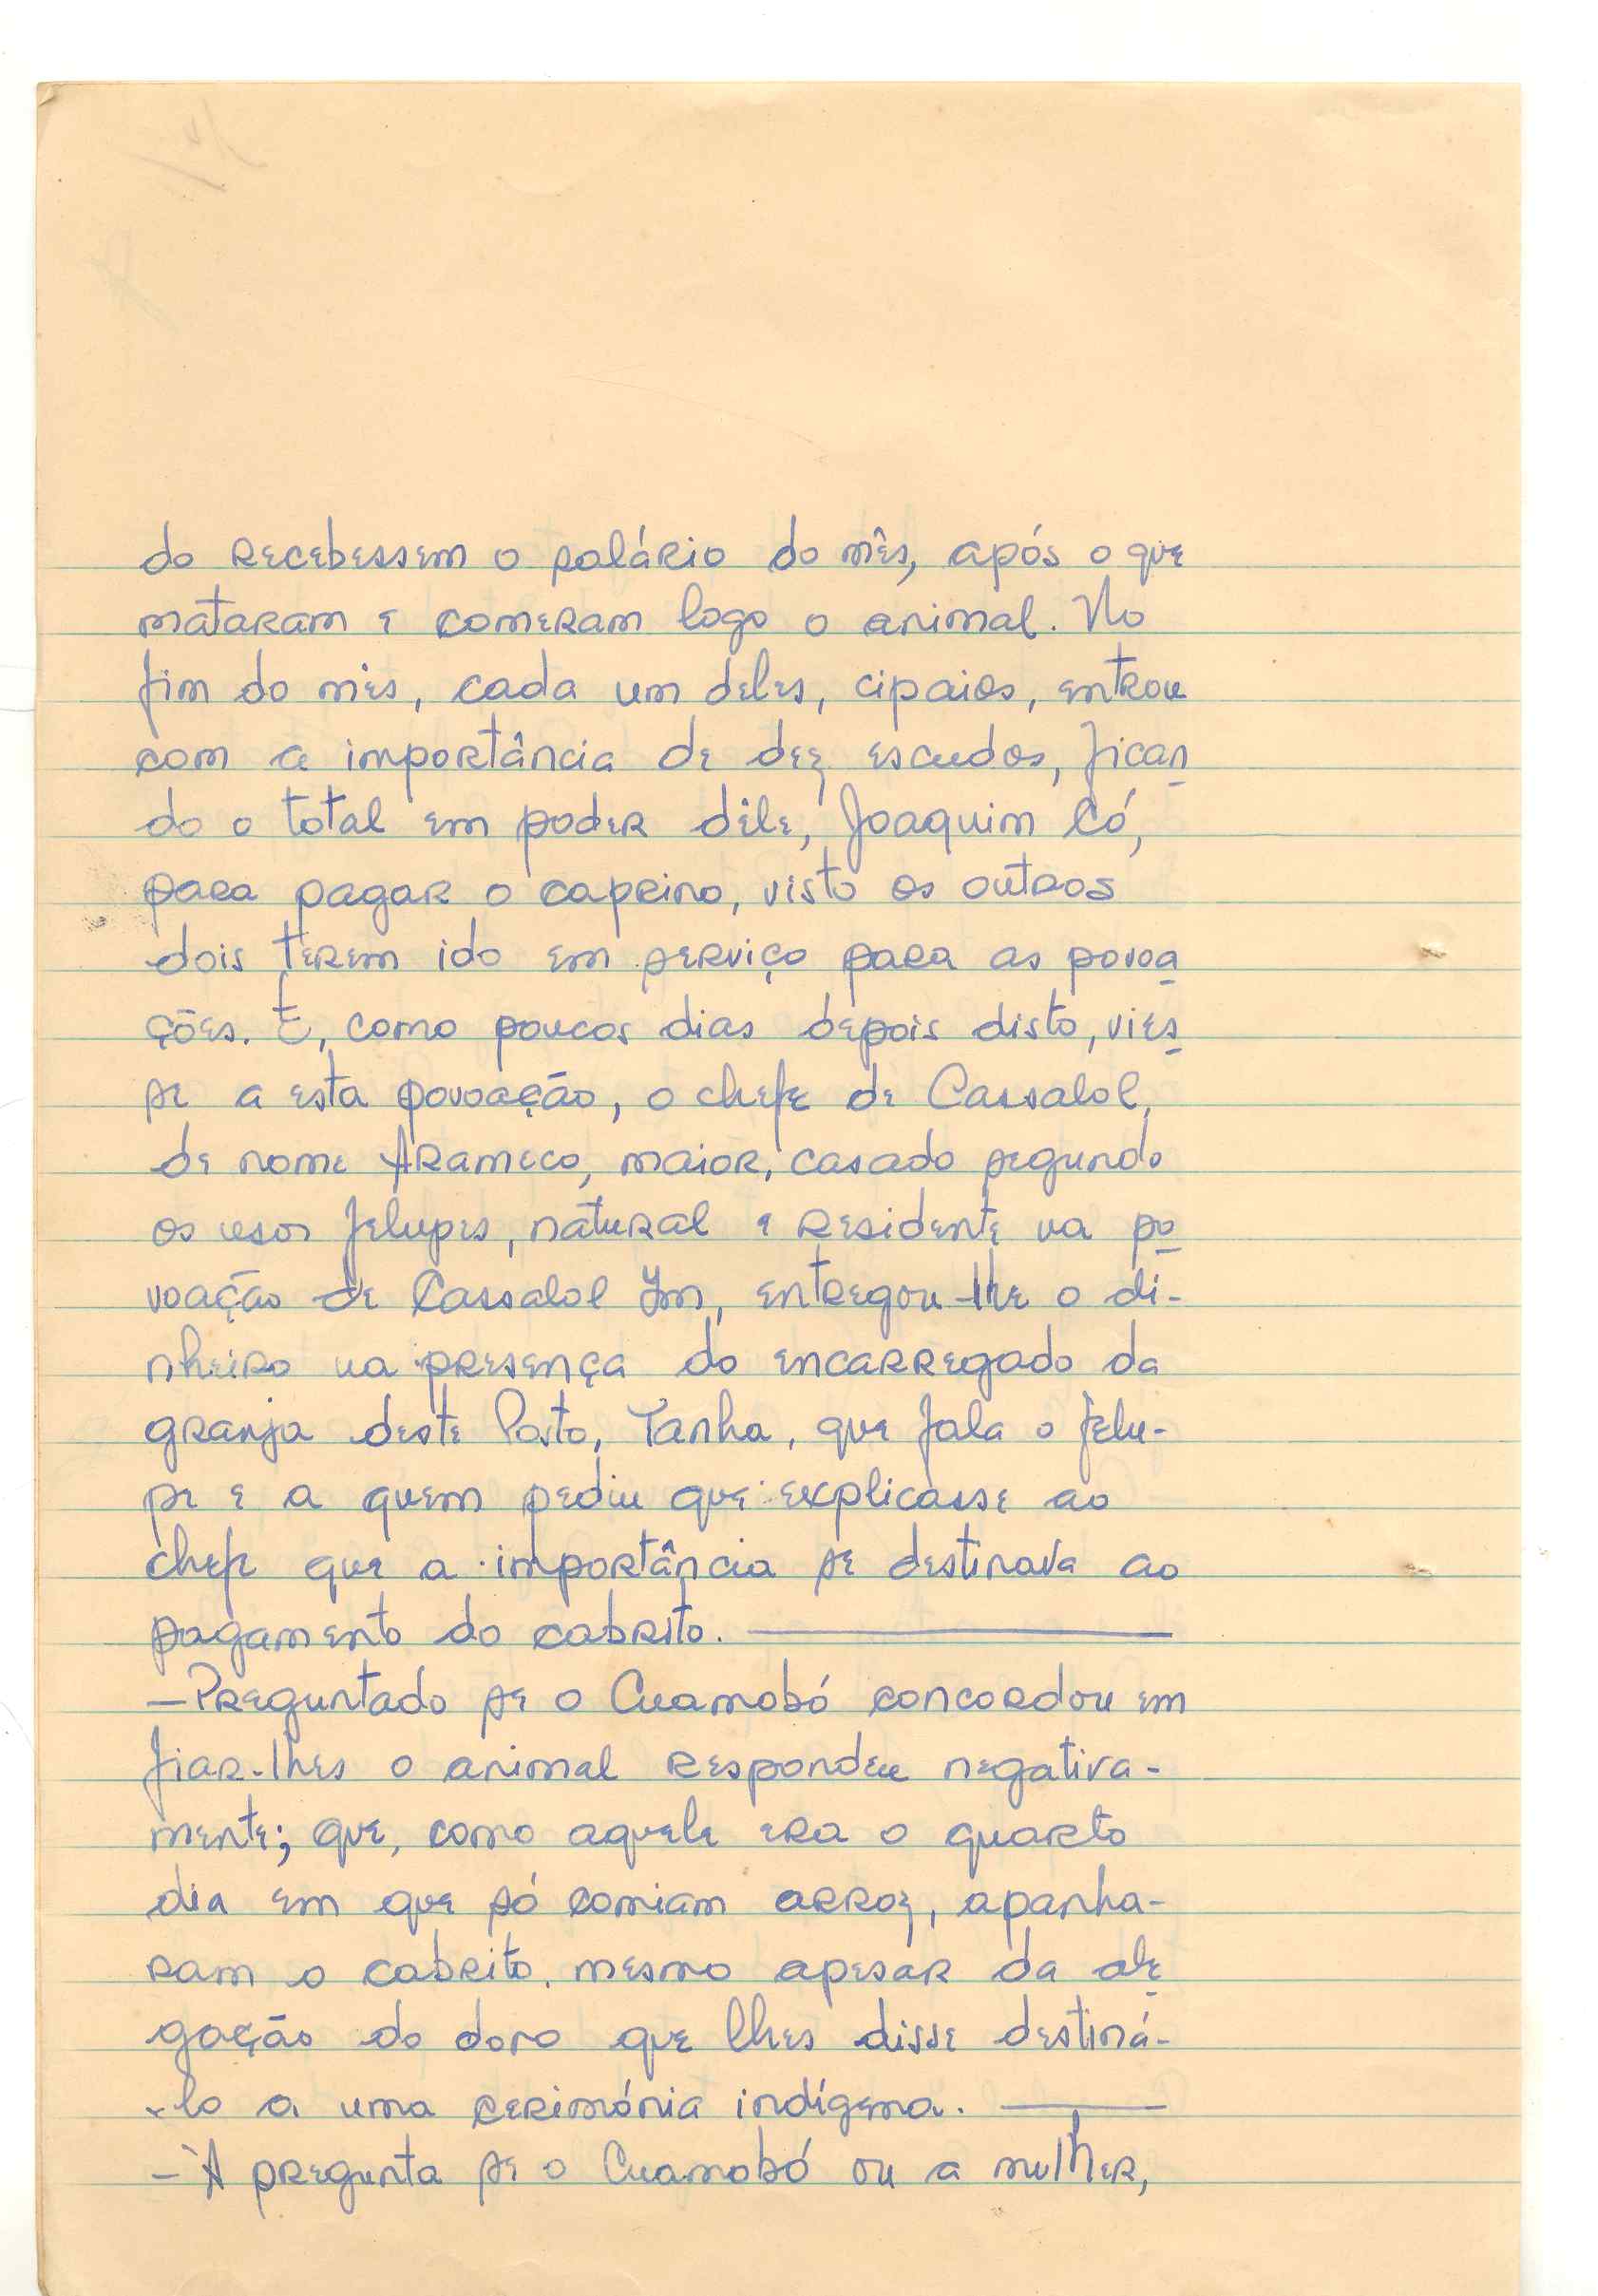 do recebessem o salário do mês, após o que
mataram e comeram logo o animal. No
fim do mês, cada um deles, cipaios, entrou
com a importância de dez escudos, fican
do o total em poder dêle, Joaquim Có,
para pagar o caprino, visto os outros
dois terem ido em serviço para as povoa
ções. E, como poucos dias depois disto, vies
se a esta povoação, o chefe de Cassalol,
de nome Arameco, maior, casado segundo
os usos felupes, natural e residente na po
voação de Cassalol, entregou-lhe o di-
nheiro na presença do encarregado da
granja deste Posto, Tanha, que fala o felu-
pe e a quem pediu que explicasse ao
chefe que a importância se destinava ao
pagamento do cabrito.
—Preguntado se o Cuamobó concordou em
fiar-lhes o animal respondeu negativa-
mente; que, como aquele era o quarto
dia em que só comiam arroz, apanha-
ram o cabrito, mesmo apesar da ale
gação do dono que lhes disse destiná-
-lo a uma cerimónia indígena.
—À pregunta se o Cuamobó ou a mulher,